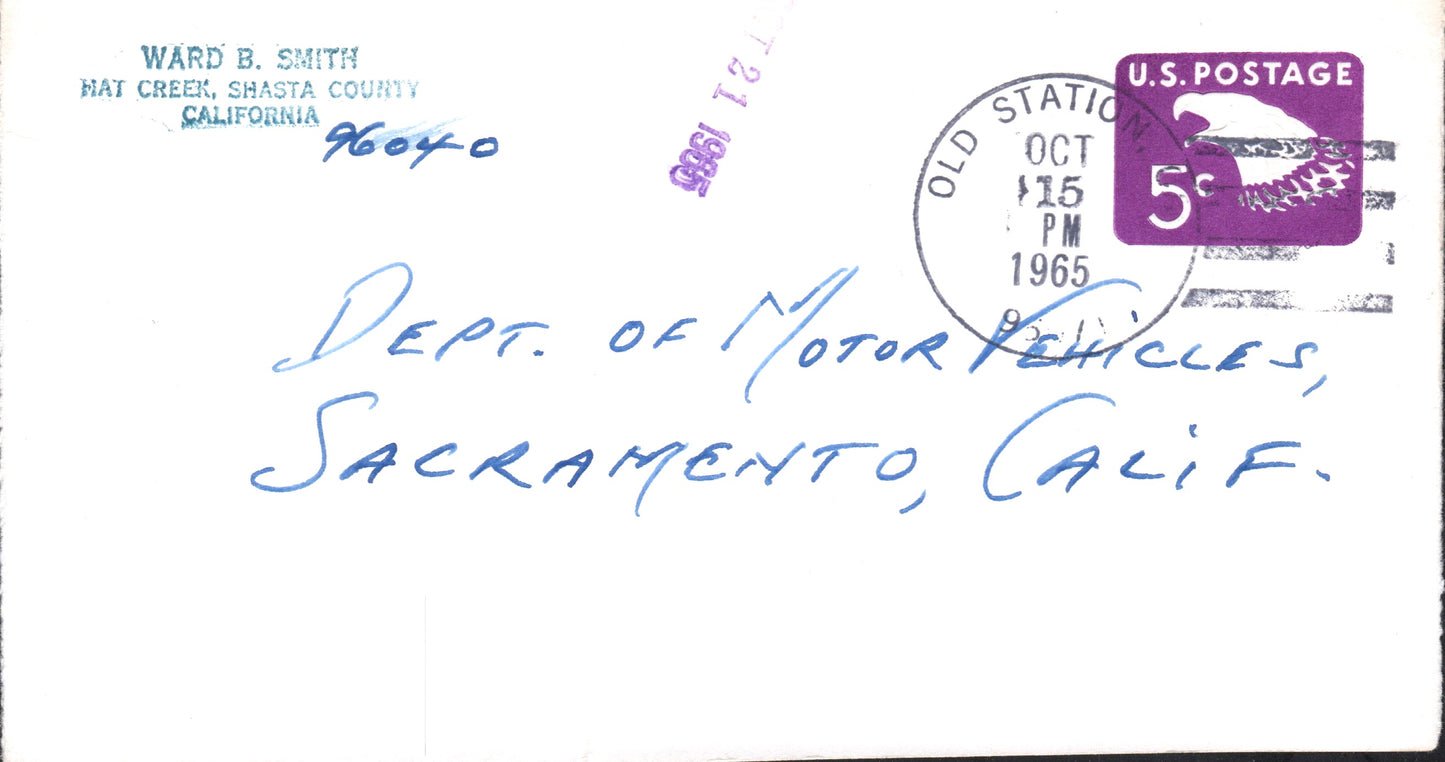 WARD B. SMITH
HAT CREEK, SHASTA COUNTY
CALIFORNIA
96040
21 1965
OLD STATION,
OCT
15
PM
1965
U.S. POSTAGE
5c
DEPT. OF MOTOR VEHICLES,
SACRAMENTO, CALIF.